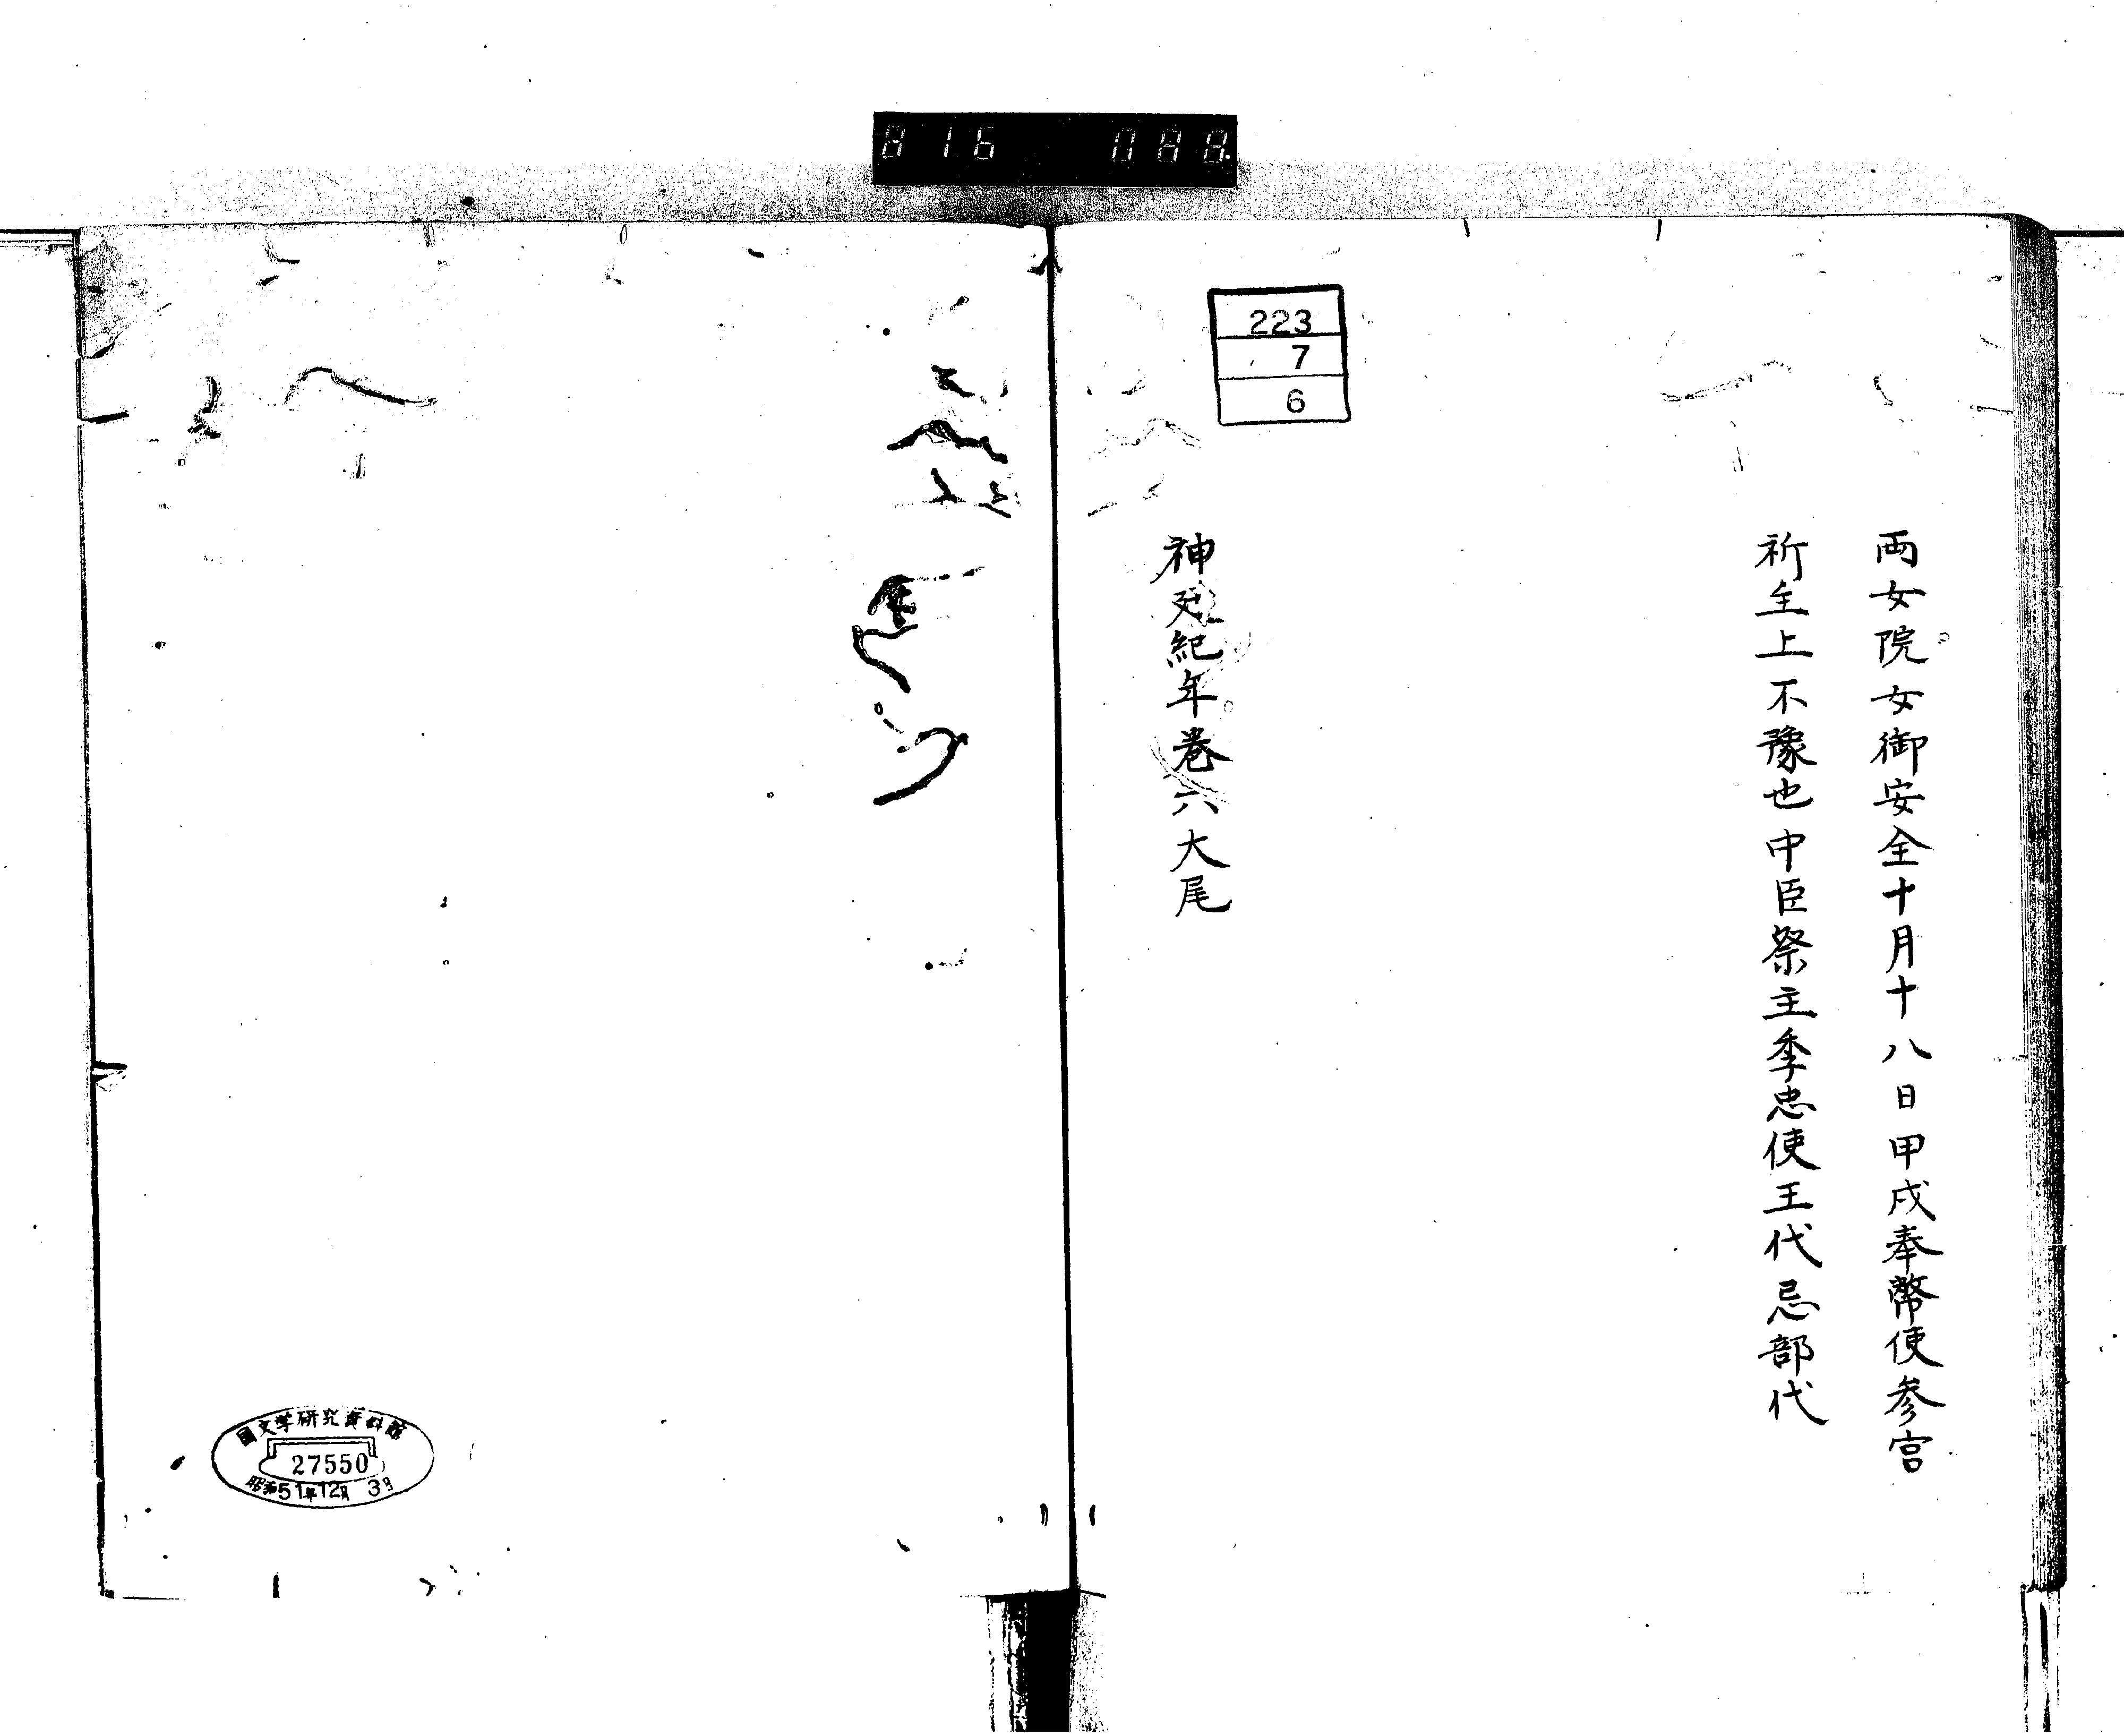 816 088
両女院女御安全十月十八日甲戌奉幣使参宮
祈主上不豫也中臣祭主季忠使王代忌部代
223
7
6
神廷紀年巻六大尾
國文学研究資料館
27550
昭和51年12月3日